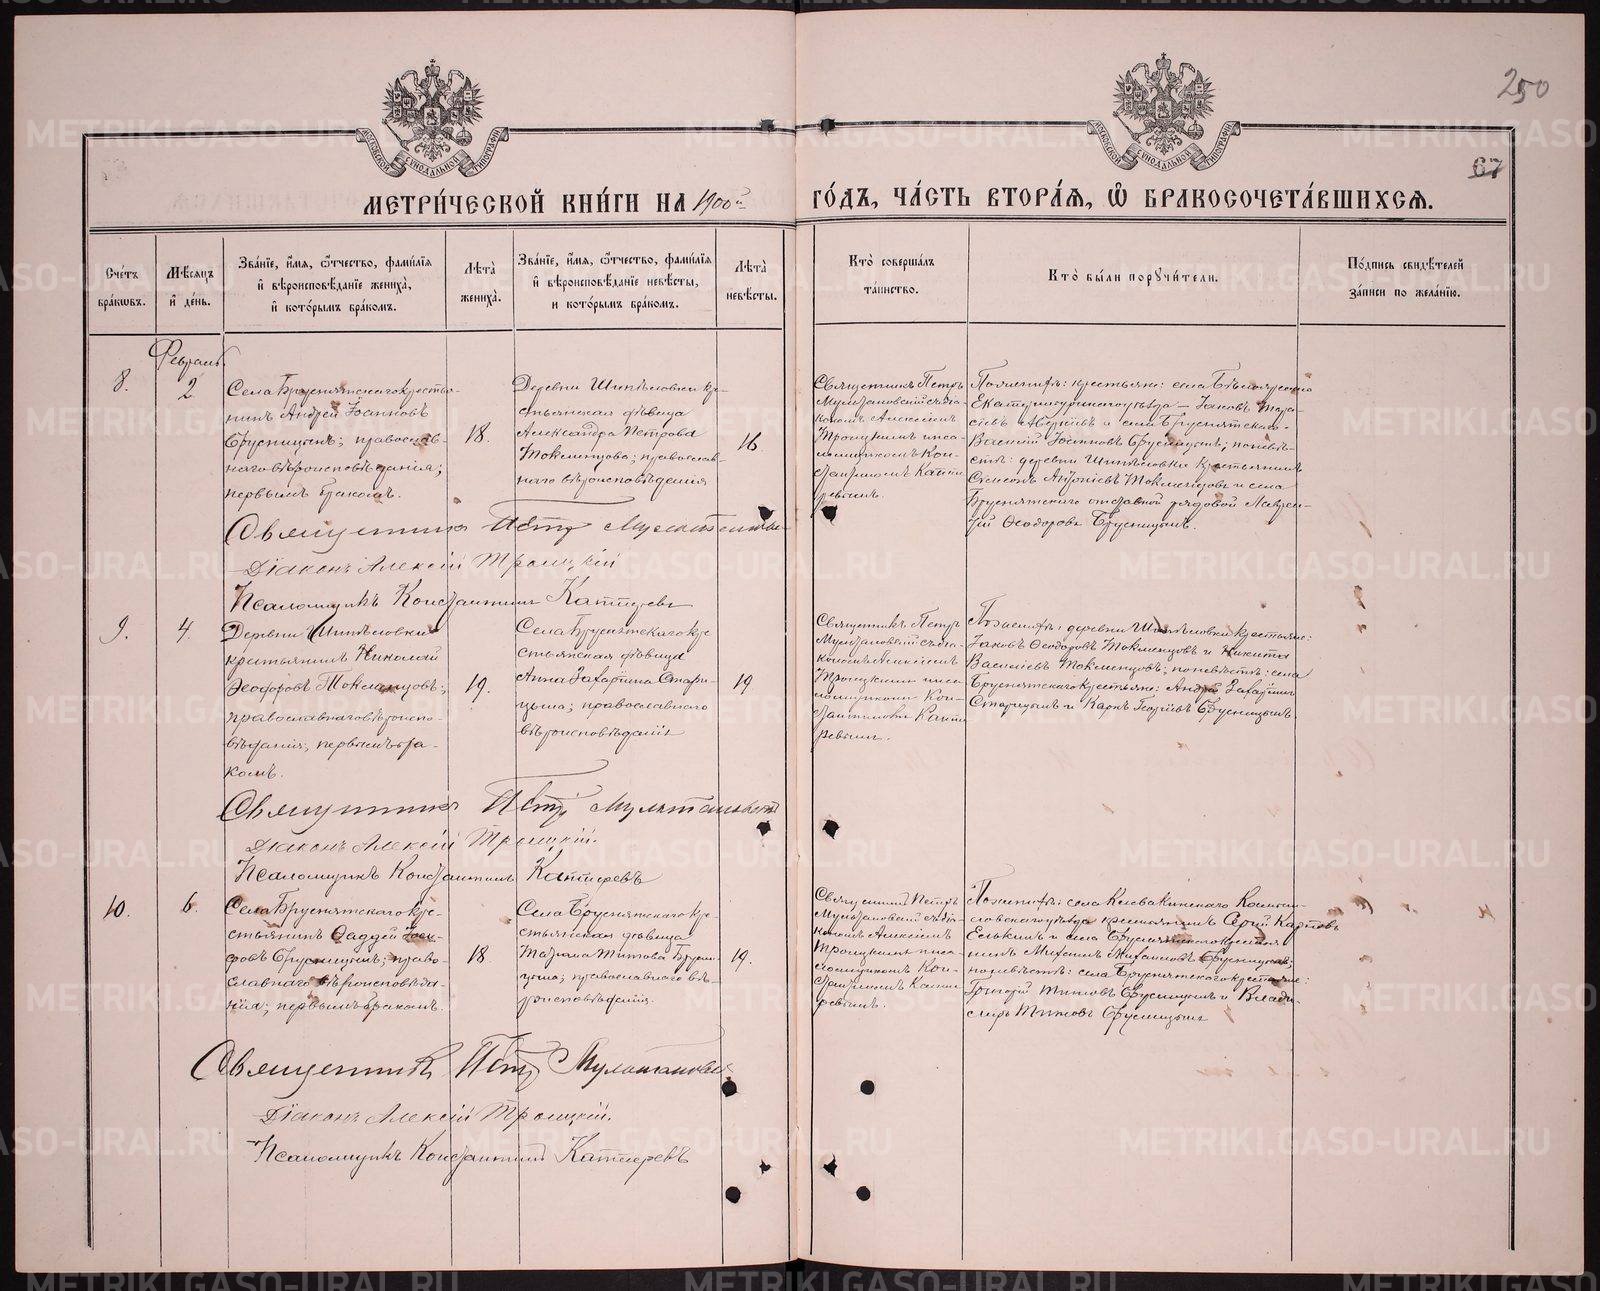 250
67
МОСКОВСКОЙ СѴНОДАЛЬНОЙ ТИПОГРАФІИ
МОСКОВСКОЙ СѴНОДАЛЬНОЙ ТИПОГРАФІИ
МЕТРИ́ЧЕСКОЙ КНИ́ГИ НА 1900й ГО́ДЪ, ЧА́СТЬ ВТОРА́Ѧ, Ѽ БРАКОСОЧЕТА́ВШИХСѦ.
Сче́тъ
бра́ковъ.
Мѣ́сяцъ
и҆ де́нь.
Зва́нїе, и҆́мя, ѻ҆́тчество, фами́лїя
и҆ вѣроисповѣ́данїе жениха̀,
и҆ кото́рымъ бра́комъ.
Лѣ́та̀
жениха̀.
Зва́нїе, и҆́мя, ѻ҆́тчество, фами́лїя
и҆ вѣроисповѣ́данїе невѣ́сты,
и҆ кото́рымъ бра́комъ.
Лѣ́та̀
невѣ́сты.
Кто̀ соверша́лъ
та́инство.
Кто̀ бы́ли порꙋчи́тели.
По́дпись свидѣ́телей
за́писи по жела́нїю.
Февраль
8.
2
Села Бруснятскаго крестья-
нинъ Андрей Іоанновъ
Брусницынъ; православ-
наго вѣроисповѣданія;
первымъ бракомъ.
18.
Деревни Шипѣловки кре-
стьянская дѣвица
Александра Петрова
Токманцова; православ-
наго вѣроисповѣданія
16
Священникъ Петръ
Мультановскій съ діа-
кономъ Алексіемъ
Троицкимъ и пса-
ломщикомъ Кон-
стантиномъ Капте-
ревымъ.
По женихѣ: крестьяне: села Бѣлоярскаго
Екатеринбургскаго уѣзда — Іаковъ
и села Бруснятскаго
Василій Іоанновъ Брусницынъ; по невѣ-
стѣ: деревни Шипѣловки крестьянинъ
Симеонъ Антоніевъ Токманцовъ и села
Бруснятскаго отставной рядовой Лаврен-
тій Ѳеодоровъ Брусницынъ.
Священникъ Петръ Мультановскій
Діаконъ Алексій Троицкій
Псаломщикъ Константинъ Каптеревъ
9.
4
Деревни Шипѣловки
крестьянинъ Николай
Ѳеодоровъ Токманцовъ;
православнаго вѣроиспо-
вѣданія; первымъ бра-
комъ.
19.
Села Бруснятскаго кре-
стьянская дѣвица
Анна Захарина Стари-
цына; православнаго
вѣроисповѣданія
19
Священникъ Петръ
Мультановскій съ діа-
кономъ Алексіемъ
Троицкимъ и пса-
ломщикомъ Кон-
стантиномъ Капте-
ревымъ.
По женихѣ: деревни Шипѣловки крестьяне:
Іаковъ Ѳеодоровъ Токманцовъ и Никита
Василіевъ Токманцовъ; по невѣстѣ: села
Бруснятскаго крестьяне: Андрей Захаринъ
Старицынъ и Карпъ Георгіевъ Брусницынъ.
Священникъ Петръ Мультановскій
Діаконъ Алексій Троицкій.
Псаломщикъ Константинъ Каптеревъ
10.
6.
Села Бруснятскаго кре-
стьянинъ Ѳаддей Іоси-
фовъ Брусницынъ; право-
славнаго вѣроисповѣда-
нія; первымъ бракомъ.
18.
Села Бруснятскаго кре-
стьянская дѣвица
Татіана Титова Брусни-
цына; православнаго вѣ-
роисповѣданія.
19.
Священникъ Петръ
Мультановскій съ діа-
кономъ Алексіемъ
Троицкимъ и пса-
ломщикомъ Кон-
стантиномъ Капте-
ревымъ.
По женихѣ: села Камыш-
ловскаго уѣзда крестьянинъ Сергій Карповъ
Елькинъ и села Бруснятскаго крестья-
нинъ Михаилъ Михаиловъ Брусницынъ;
по невѣстѣ: села Бруснятскаго крестьяне:
Григорій Титовъ Брусницынъ и Влади-
міръ Титовъ Брусницынъ
Священникъ Петръ Мультановскій
Діаконъ Алексій Троицкій.
Псаломщикъ Константинъ Каптеревъ
METRIKI.GASO-URAL.RU